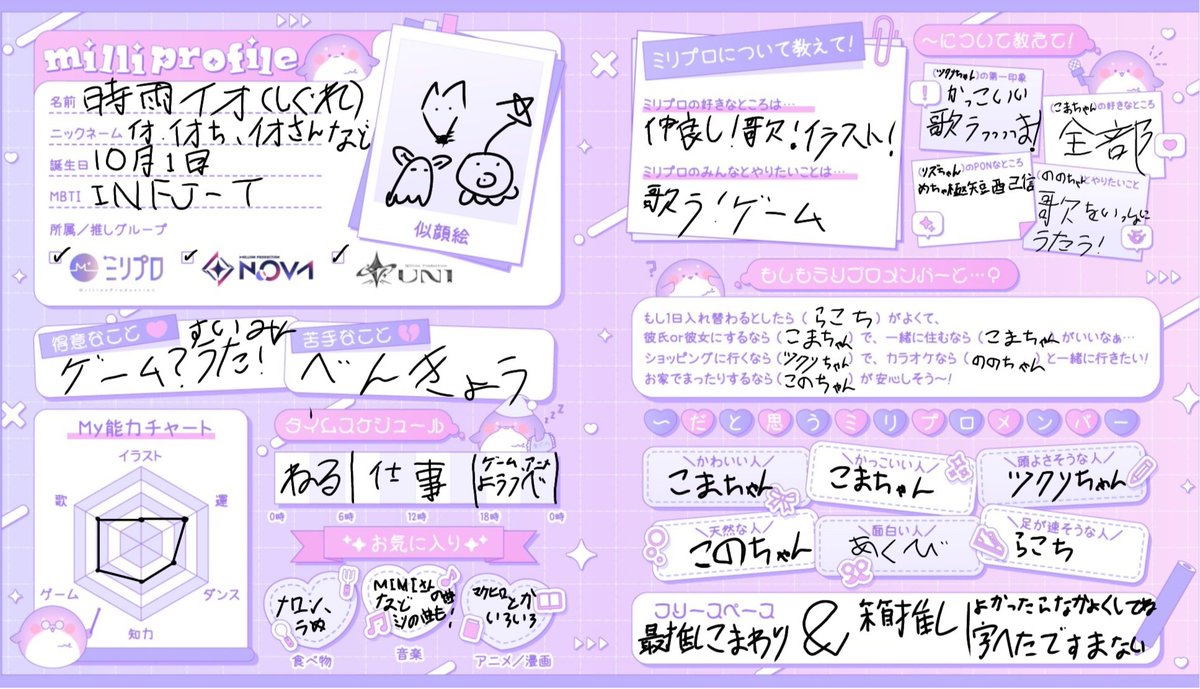 milliprofile
名前 時雨イオ(しぐれ)
ニックネーム イオ、イオち、イオさんなど
誕生日 10月1日
MBTI INFJ-T
所属/推しグループ
ミリプロ
MillionProduction
NOVA
UNI
似顔絵
得意なこと すいみん
ゲーム?うた!
苦手なこと
べんきょう
My能力チャート
イラスト
歌
運
ゲーム
ダンス
知力
タイムスケジュール
ねる
仕事
ゲーム、アニメ
0時 6時 12時 18時 0時
お気に入り
メロン、
食べ物
MIMIさん
など
音楽
いろいろ
アニメ/漫画
ミリプロについて教えて!
ミリプロの好きなところは…
仲良し!歌!イラスト!
ミリプロのみんなとやりたいことは…
歌う!ゲーム
〜について教えて!
(ツクリちゃん)の第一印象
かっこいい
歌うっっっま!
(こまちゃん)の好きなところ
全部
(リズちゃん)のPONなところ
(ののちゃん)とやりたいこと
歌をいっしょに
うたう!
もしもミリプロメンバーと…?
もし1日入れ替わるとしたら(らこち)がよくて、
彼氏or彼女にするなら(こまちゃん)で、一緒に住むなら(こまちゃん)がいいなぁ…
ショッピングに行くなら(ツクリちゃん)で、カラオケなら(ののちゃん)と一緒に行きたい!
お家でまったりするなら(このちゃん)が安心しそう〜!
〜だと思うミリプロメンバー
かわいい人
こまちゃん
かっこいい人
こまちゃん
頭よさそうな人
ツクリちゃん
天然な人
このちゃん
面白い人
あくび
足が速そうな人
らこち
フリースペース
最推しこまわり & 箱推し
よかったらなかよくしてね
字へたですまない